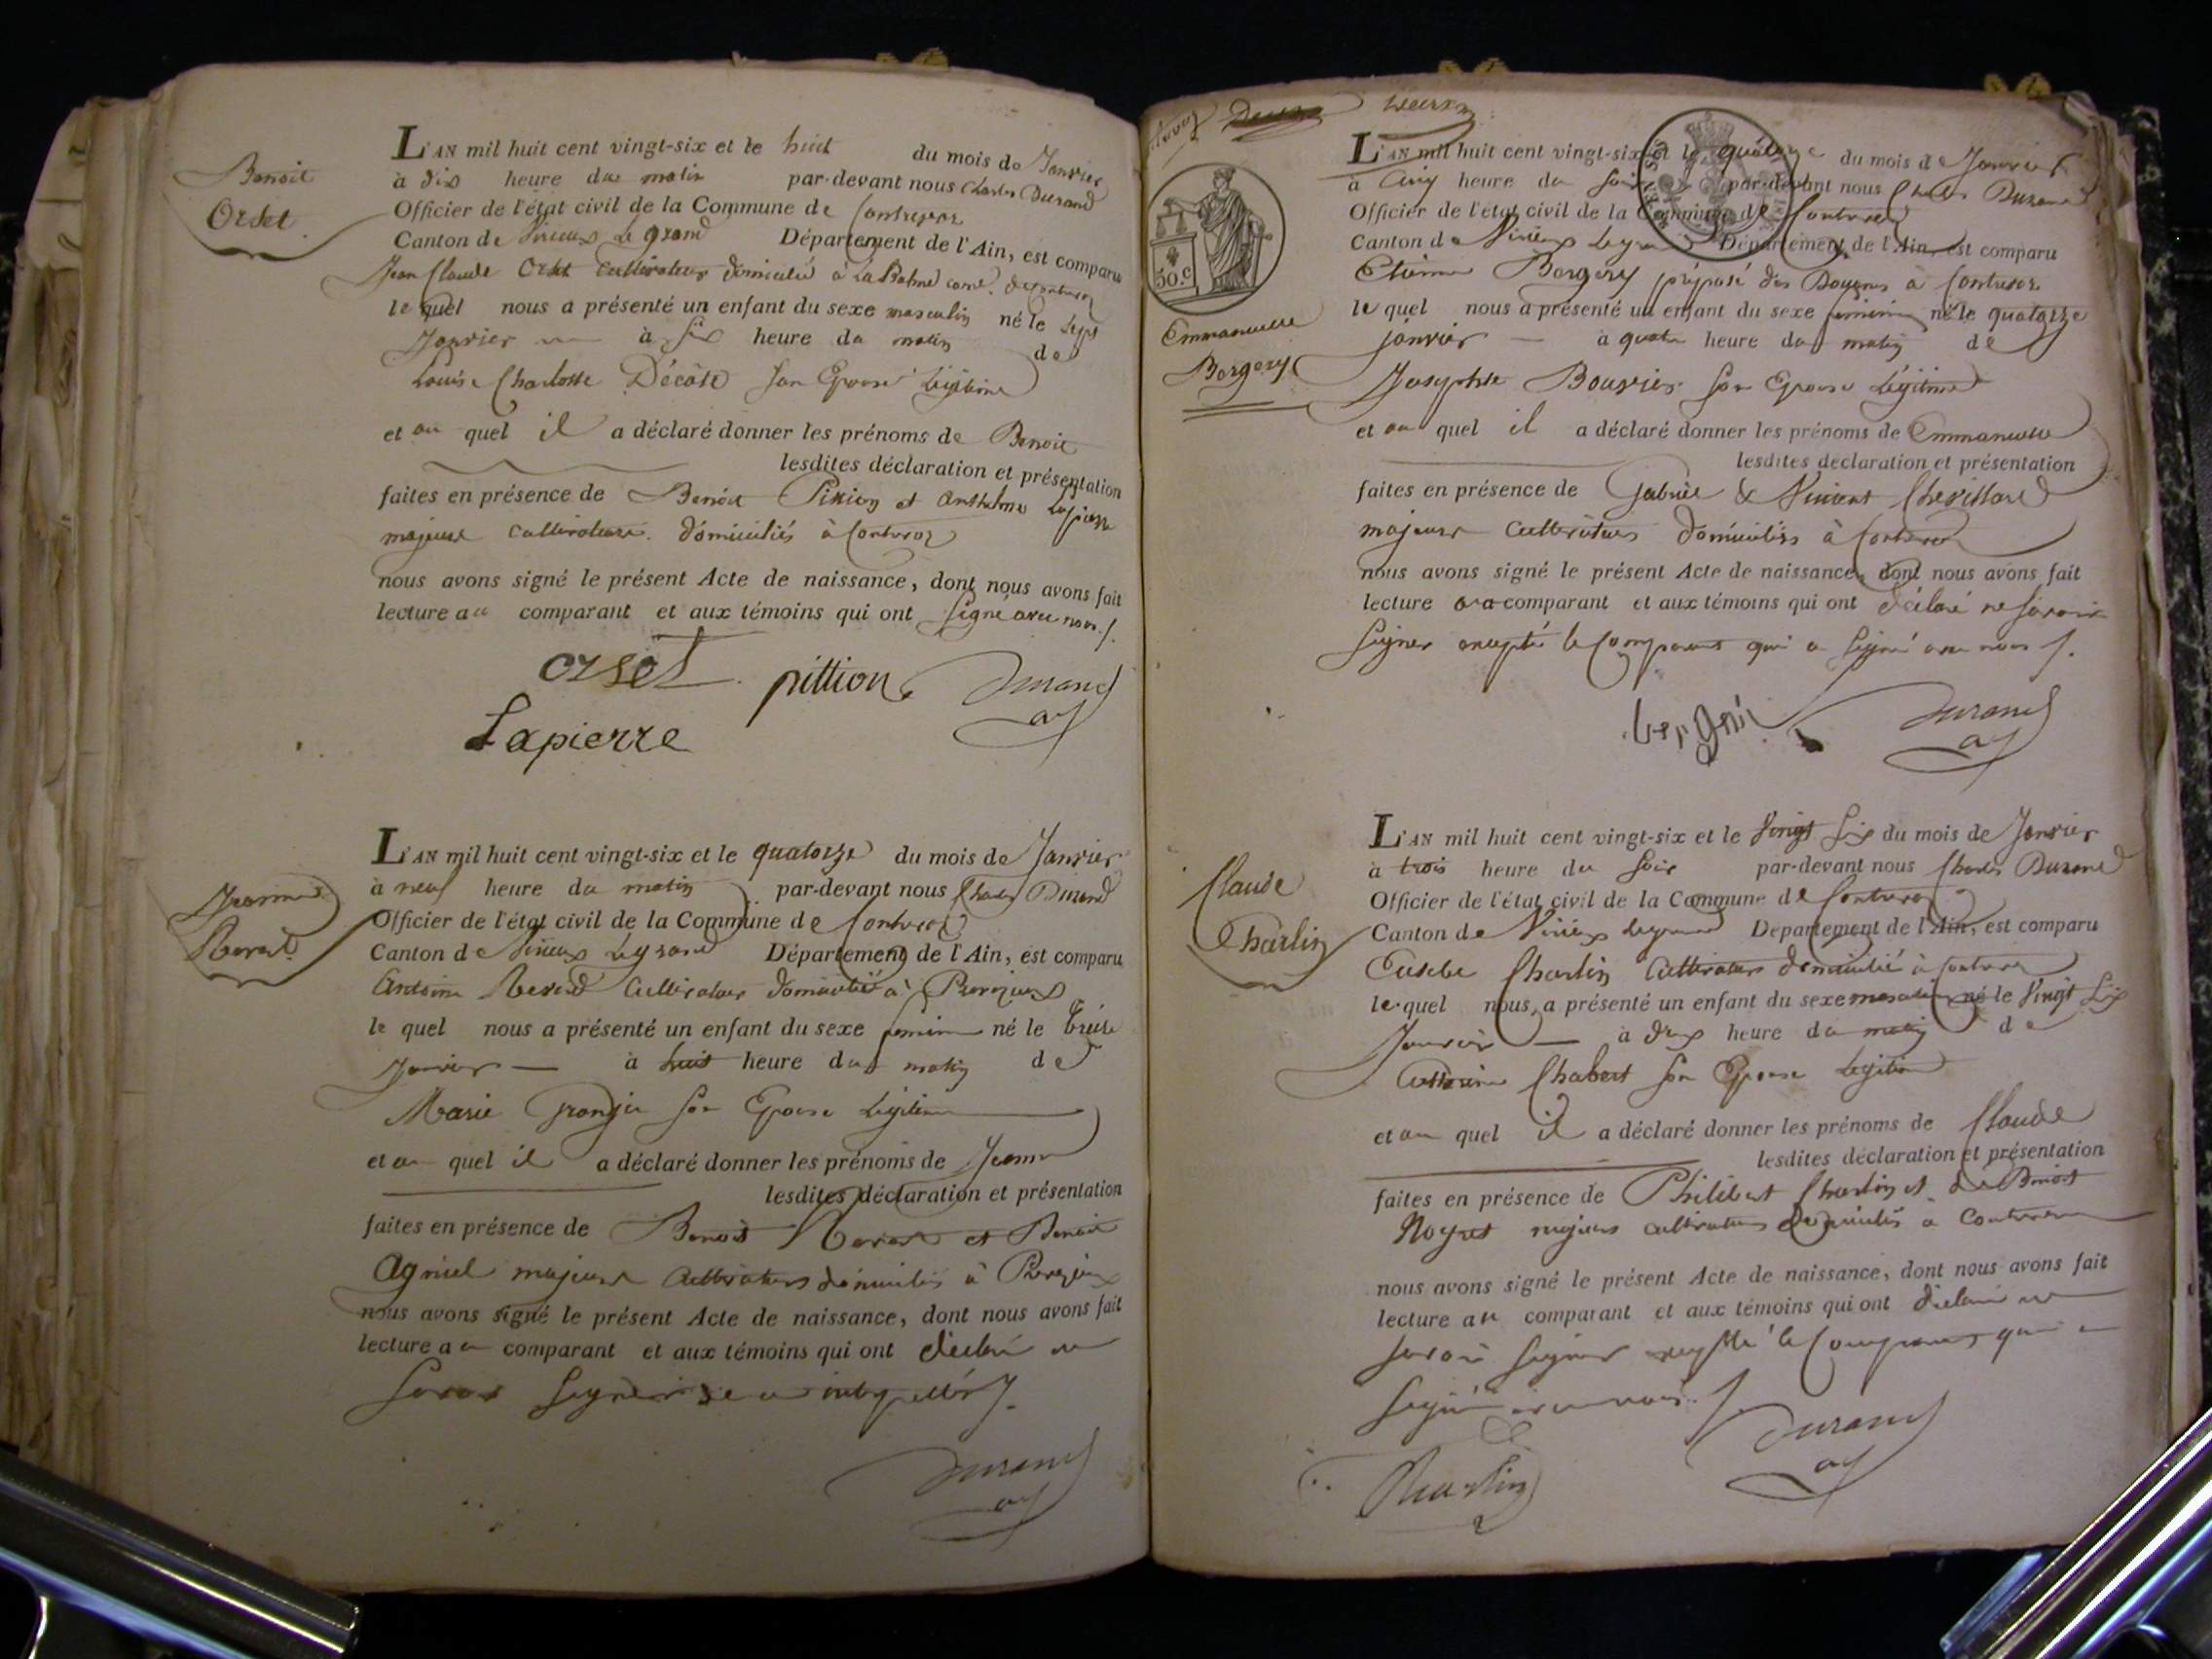 Benoit
Orset
L'AN mil huit cent vingt-six et le huit du mois de Janvier
à dix heure du matin par-devant nous Charles Durand
Officier de l'état civil de la Commune de Contrevoz
Canton de Virieux Le grand Département de l'Ain, est comparu
Jean Claude Orset Cultivateur domicilié à La Balme
le quel nous a présenté un enfant du sexe masculin né le Sept
Janvier à six heure du matin de
Louise Charlotte Décôte son Epouse Légitime
et au quel il a déclaré donner les prénoms de Benoit
lesdites déclaration et présentation
faites en présence de Benoit Pittion et Anthelme Lapierre
majeurs cultivateurs domiciliés à Contrevoz
nous avons signé le présent Acte de naissance, dont nous avons fait
lecture au comparant et aux témoins qui ont signé avec nous
orset pittion Durand
Lapierre
Jeanne
L'AN mil huit cent vingt-six et le quatorze du mois de Janvier
à neuf heure du matin par-devant nous Charles Durand
Officier de l'état civil de la Commune de Contrevoz
Canton de Virieux Legrand Département de l'Ain, est comparu
Antoine Cultivateur domicilié à
le quel nous a présenté un enfant du sexe feminin né le treize
Janvier à huit heure du matin de
Marie son Epouse Légitime
et au quel il a déclaré donner les prénoms de Jeanne
lesdites déclaration et présentation
faites en présence de Benoit et Benoit
Agniel majeurs Cultivateurs domiciliés à
nous avons signé le présent Acte de naissance, dont nous avons fait
lecture au comparant et aux témoins qui ont déclaré ne
savoir signer
Durand
50.c
Emmanuelle
Borgery
L'AN mil huit cent vingt-six et le quatorze du mois de Janvier
à cinq heure du soir par-devant nous Charles Durand
Officier de l'état civil de la Commune de Contrevoz
Canton de Virieux Legrand Département de l'Ain, est comparu
Etienne Borgery préposé des Douanes à Contrevoz
le quel nous a présenté un enfant du sexe feminin né le quatorze
janvier à quatre heure du matin de
Josephte Bouvier son Epouse Légitime
et au quel il a déclaré donner les prénoms de Emmanuelle
lesdites déclaration et présentation
faites en présence de Gabriel & Vincent Chevillard
majeurs cultivateurs domiciliés à Contrevoz
nous avons signé le présent Acte de naissance, dont nous avons fait
lecture au comparant et aux témoins qui ont déclaré ne savoir
signer excepté le Comparant qui a signé avec nous
Durand
Claude
Charlin
L'AN mil huit cent vingt-six et le vingt six du mois de Janvier
à trois heure du soir par-devant nous Charles Durand
Officier de l'état civil de la Commune de Contrevoz
Canton de Virieux Legrand Département de l'Ain, est comparu
Eusebe Charlin Cultivateur domicilié à Contrevoz
le quel nous a présenté un enfant du sexe masculin né le vingt six
Janvier à deux heure du matin de
Chabert son Epouse Légitime
et au quel il a déclaré donner les prénoms de Claude
lesdites déclaration et présentation
faites en présence de Philibert Charlin et de Benoit
Noyret majeurs cultivateurs domiciliés à Contrevoz
nous avons signé le présent Acte de naissance, dont nous avons fait
lecture au comparant et aux témoins qui ont déclaré ne
savoir signer excepté le Comparant qui a
signé avec nous
Charlin Durand